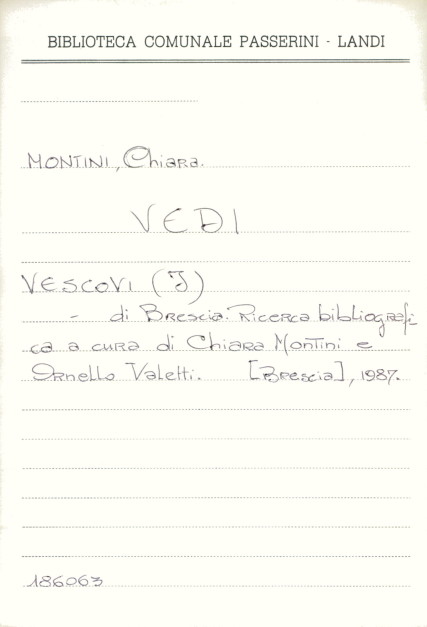 BIBLIOTECA COMUNALE PASSERINI - LANDI
MONTINI, Chiara.
VEDI
VESCOVI (I)
- di Brescia. Ricerca bibliografi-
ca a cura di Chiara Montini e
Ornello Valetti. [Brescia], 1987.
186063